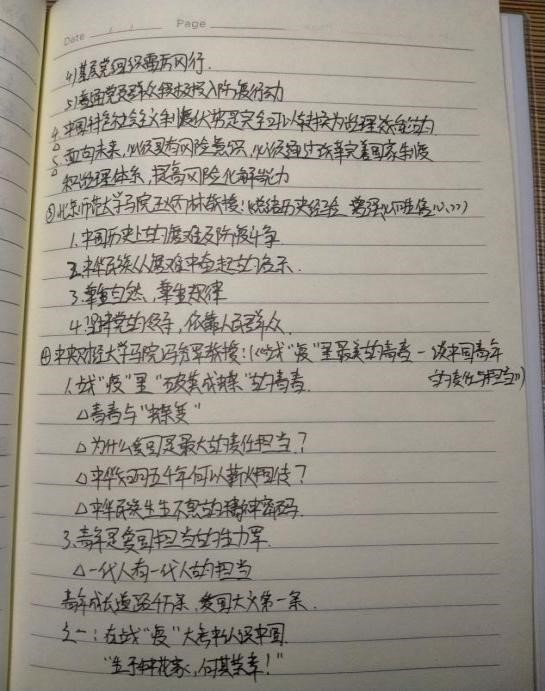 Date / / Page
4)基层党组织雷厉风行.
5)普通党员群众积极投入防疫行动
4.中国特色社会主义制度优势是完全可以转换为治理效能的.
5.面向未来,必须更有风险意识,必须通过改革完善国家制度
和治理体系,提高风险化解能力
③北京师范大学马院王炳林教授:《总结历史经验 增强必胜信心》
1.中国历史上的疫难及防疫斗争
2.中华民族从磨难中奋起的启示.
3.尊重自然,尊重规律
4.坚持党的领导,依靠人民群众.
④中央财经大学马院冯秀军教授:《战"疫"里最美的青春—谈中国青年
的责任与担当》
1.战"疫"里"破茧成蝶"的青春.
△青春与"蝶变"
△为什么爱国是最大的责任担当?
△中华文明五千年何以薪火相传?
△中华民族生生不息的精神密码.
3.青年是爱国担当的生力军.
△一代人有一代人的担当
青年成长道路千万条,爱国大义第一条.
之一:在战"疫"大考中认识中国.
"生于种花家,何其荣幸!"